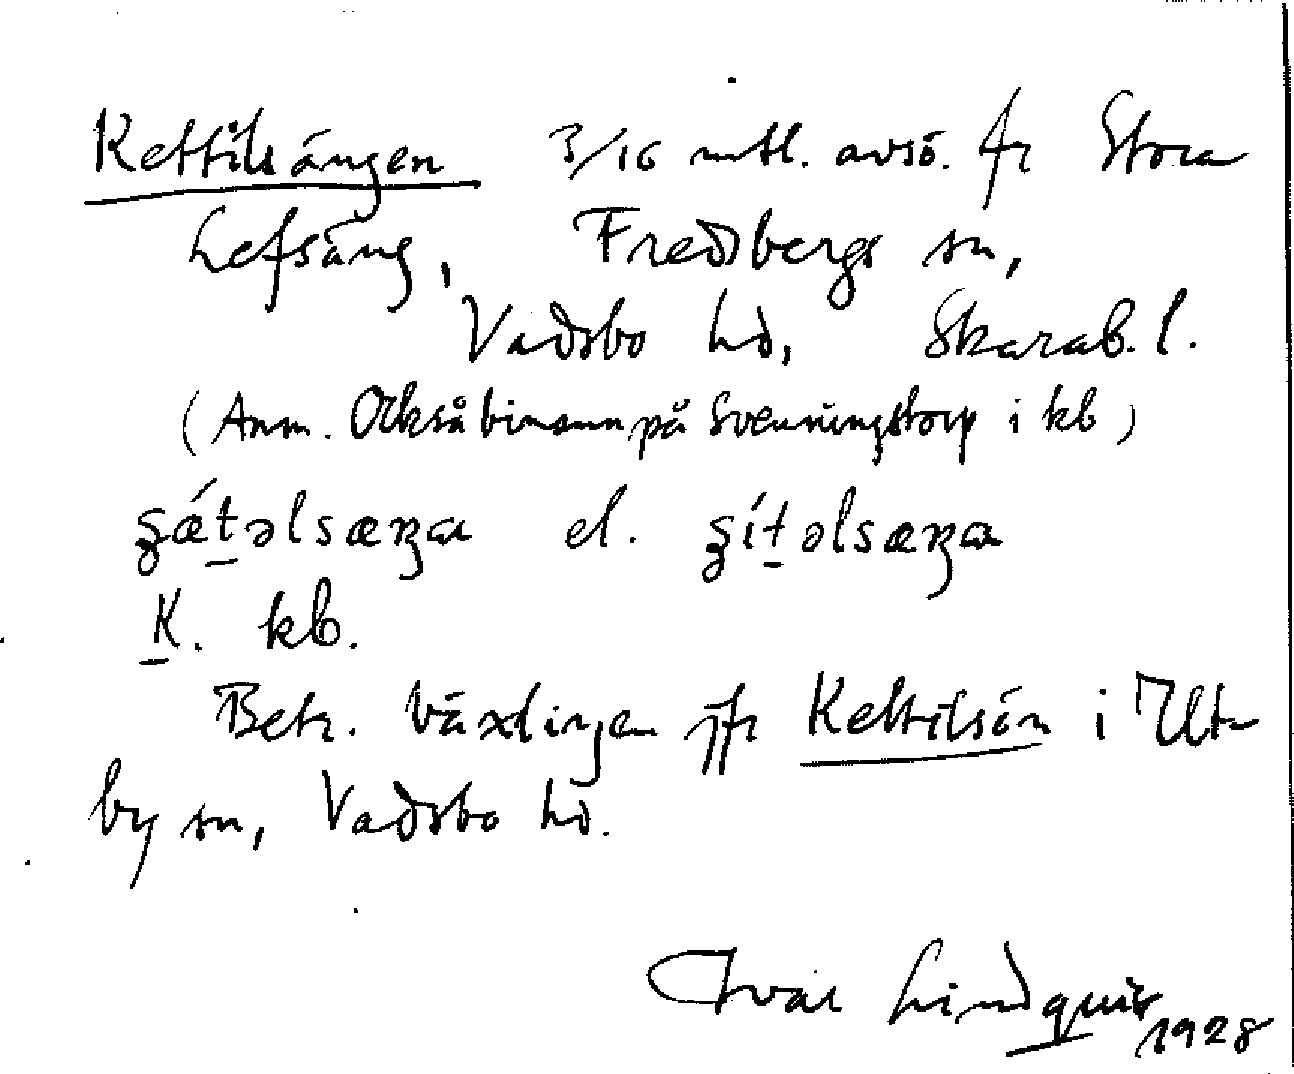 Kettilsängen 3/16 mtl. avsö. fr Stora
Lefsäng, Fredsbergs sn,
Vadsbo hd, Skarab. l.
(Anm. Också binamn på Svenningstorp i kb)
ʒǽt̠əlsæŋa el. ʒít̠əlsæŋa
K. kb.
Betr. växlingen jfr Kettilsån i Ult
by sn, Vadsbo hd.
Ivar Lindquist 1928